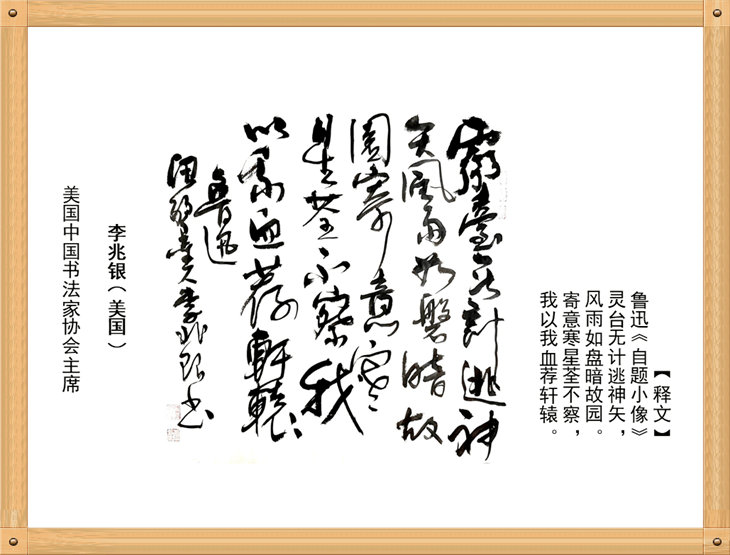 【释文】
鲁迅《自题小像》
灵台无计逃神矢，
风雨如盘暗故园。
寄意寒星荃不察，
我以我血荐轩辕。
靈臺无計逃神
矢風雨如磐暗故
園寄意寒
星荃不察我
以我血荐軒轅
魯迅
李兆银书
李兆银（美国）
美国中国书法家协会主席